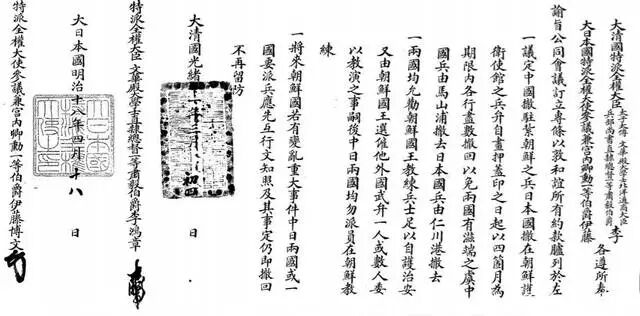 大清國特派全權大臣太子太傅文華殿大學士北洋通商大臣兵部尚書直隸總督一等肅毅伯爵李
大日本國特派全權大使參議兼宮內卿勳一等伯爵伊藤
各遵所奉
諭旨公同會議訂立專條以敦和誼所有約款臚列於左
一議定中國撤駐紮朝鮮之兵日本國撤在朝鮮護
衛使館之兵弁自畫押蓋印之日起以四箇月為
期限內各行盡數撤回以免兩國有滋端之虞中
國兵由馬山浦撤去日本國兵由仁川港撤去
一兩國均允勸朝鮮國王教練兵士足以自護治安
又由朝鮮國王選僱他外國武弁一人或數人委
以教演之事嗣後中日兩國均勿派員在朝鮮教
練
一將來朝鮮國若有變亂重大事件中日兩國或一
國要派兵應先互行文知照及其事定仍即撤回
不再留防
大清國光緒十一年三月初四日
特派全權大臣文華殿大學士直隸總督一等肅毅伯爵李鴻章
大日本國明治十八年四月十八日
特派全權大使參議兼宮內卿勳一等伯爵伊藤博文